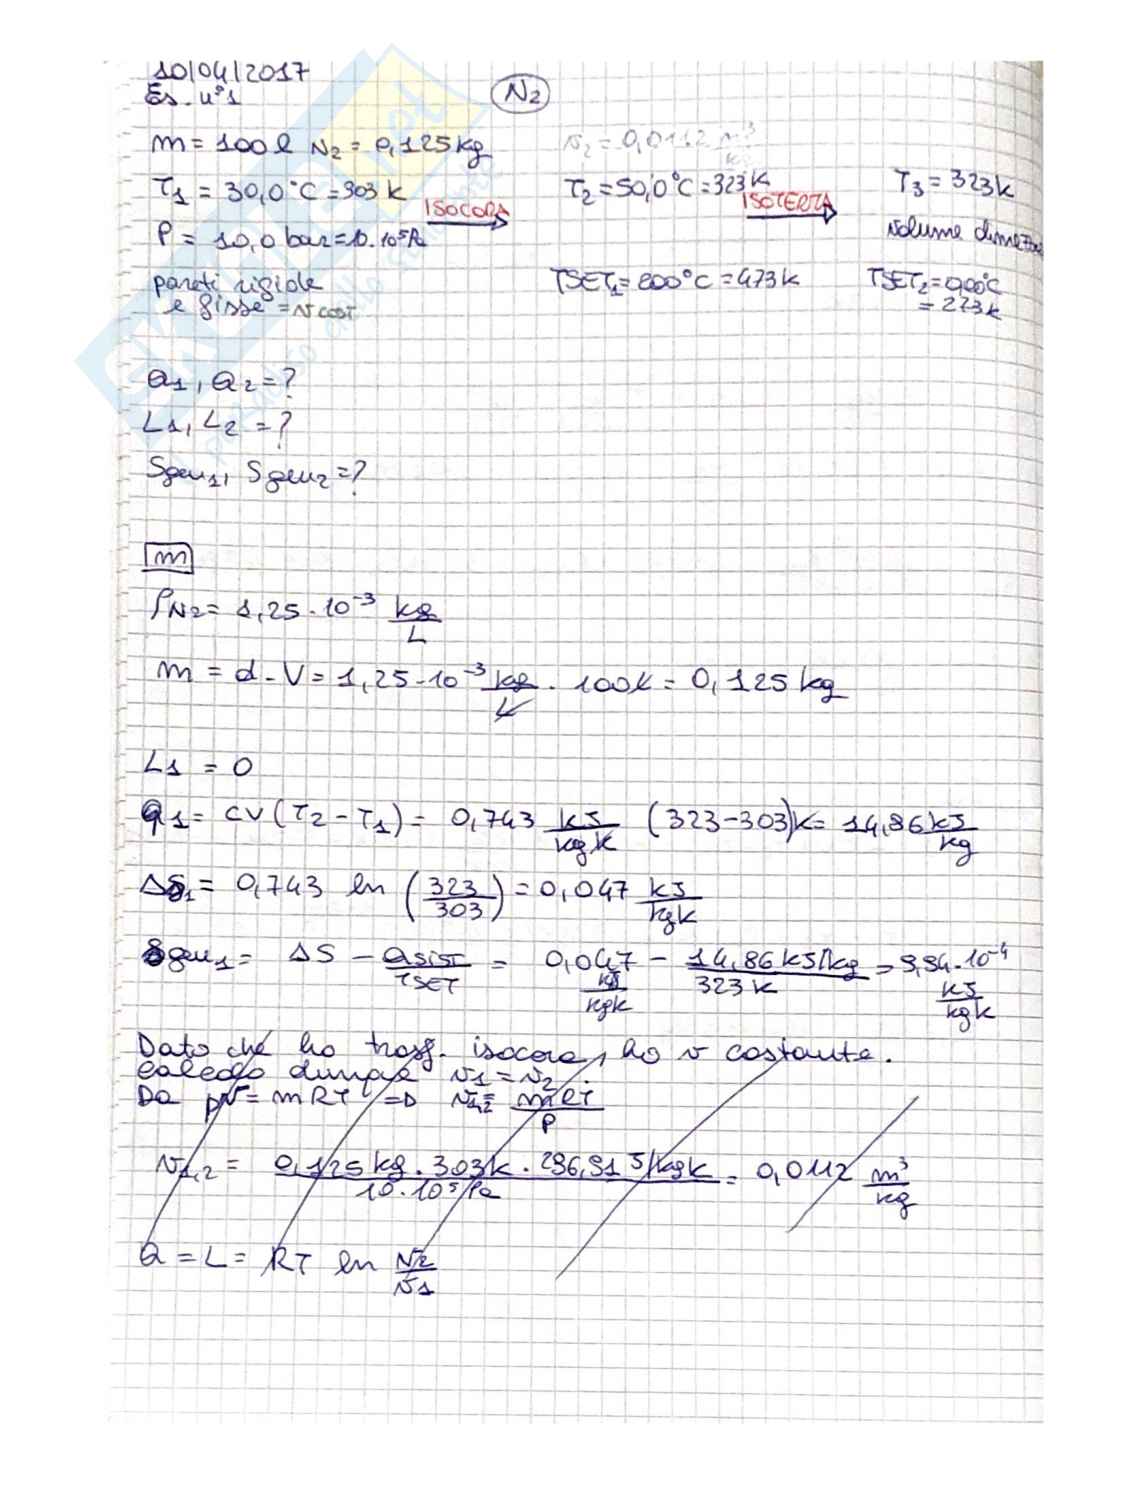 10/04/2017
Es. n°1
N2
m = 100 l N2 = 0,125 kg
v2 = 0,0112 m³/kg
T1 = 30,0°C = 303 K
ISOCORA
T2 = 50,0°C = 323 K
ISOTERMA
T3 = 323 K
P = 10,0 bar = 10·10⁵ Pa
volume dimezza
pareti rigide
e fisse = v cost
TSET1 = 200°C = 473 K
TSET2 = 0,00°C
= 273 K
Q1, Q2 = ?
L1, L2 = ?
Sgen1, Sgen2 = ?
m
ρN2 = 1,25·10⁻³ kg/L
m = d·V = 1,25·10⁻³ kg/L · 100 l = 0,125 kg
L1 = 0
q1 = cv (T2 - T1) = 0,743 kJ/kgK (323-303)K = 14,86 kJ/kg
ΔS1 = 0,743 ln (323/303) = 0,047 kJ/kgK
Sgen1 = ΔS - Qsist/TSET = 0,047 kJ/kgK - 14,86 kJ/kg / 323 K = 9,94·10⁻⁴ kJ/kgK
Dato che ho trasf. isocora, ho v costante.
Calcolo dunque v1 = v2.
Da pv = mRT => v1,2 = mRT/P
v1,2 = 0,125 kg · 303 K · 296,91 J/kgK / 10·10⁵ Pa = 0,0112 m³/kg
Q = L = RT ln v2/v1